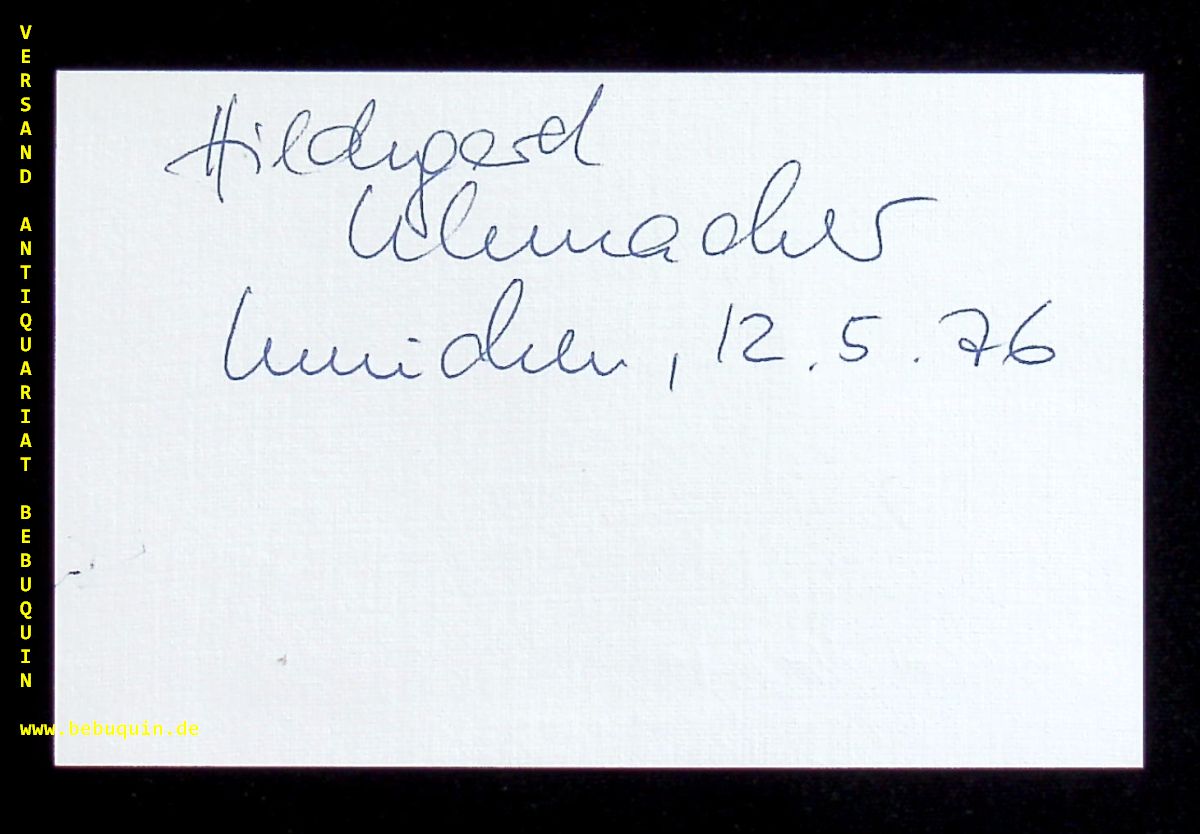 VERSAND ANTIQUARIAT BEBUQUIN
Hildegard
Uhrmacher
München, 12.5.76
www.bebuquin.de